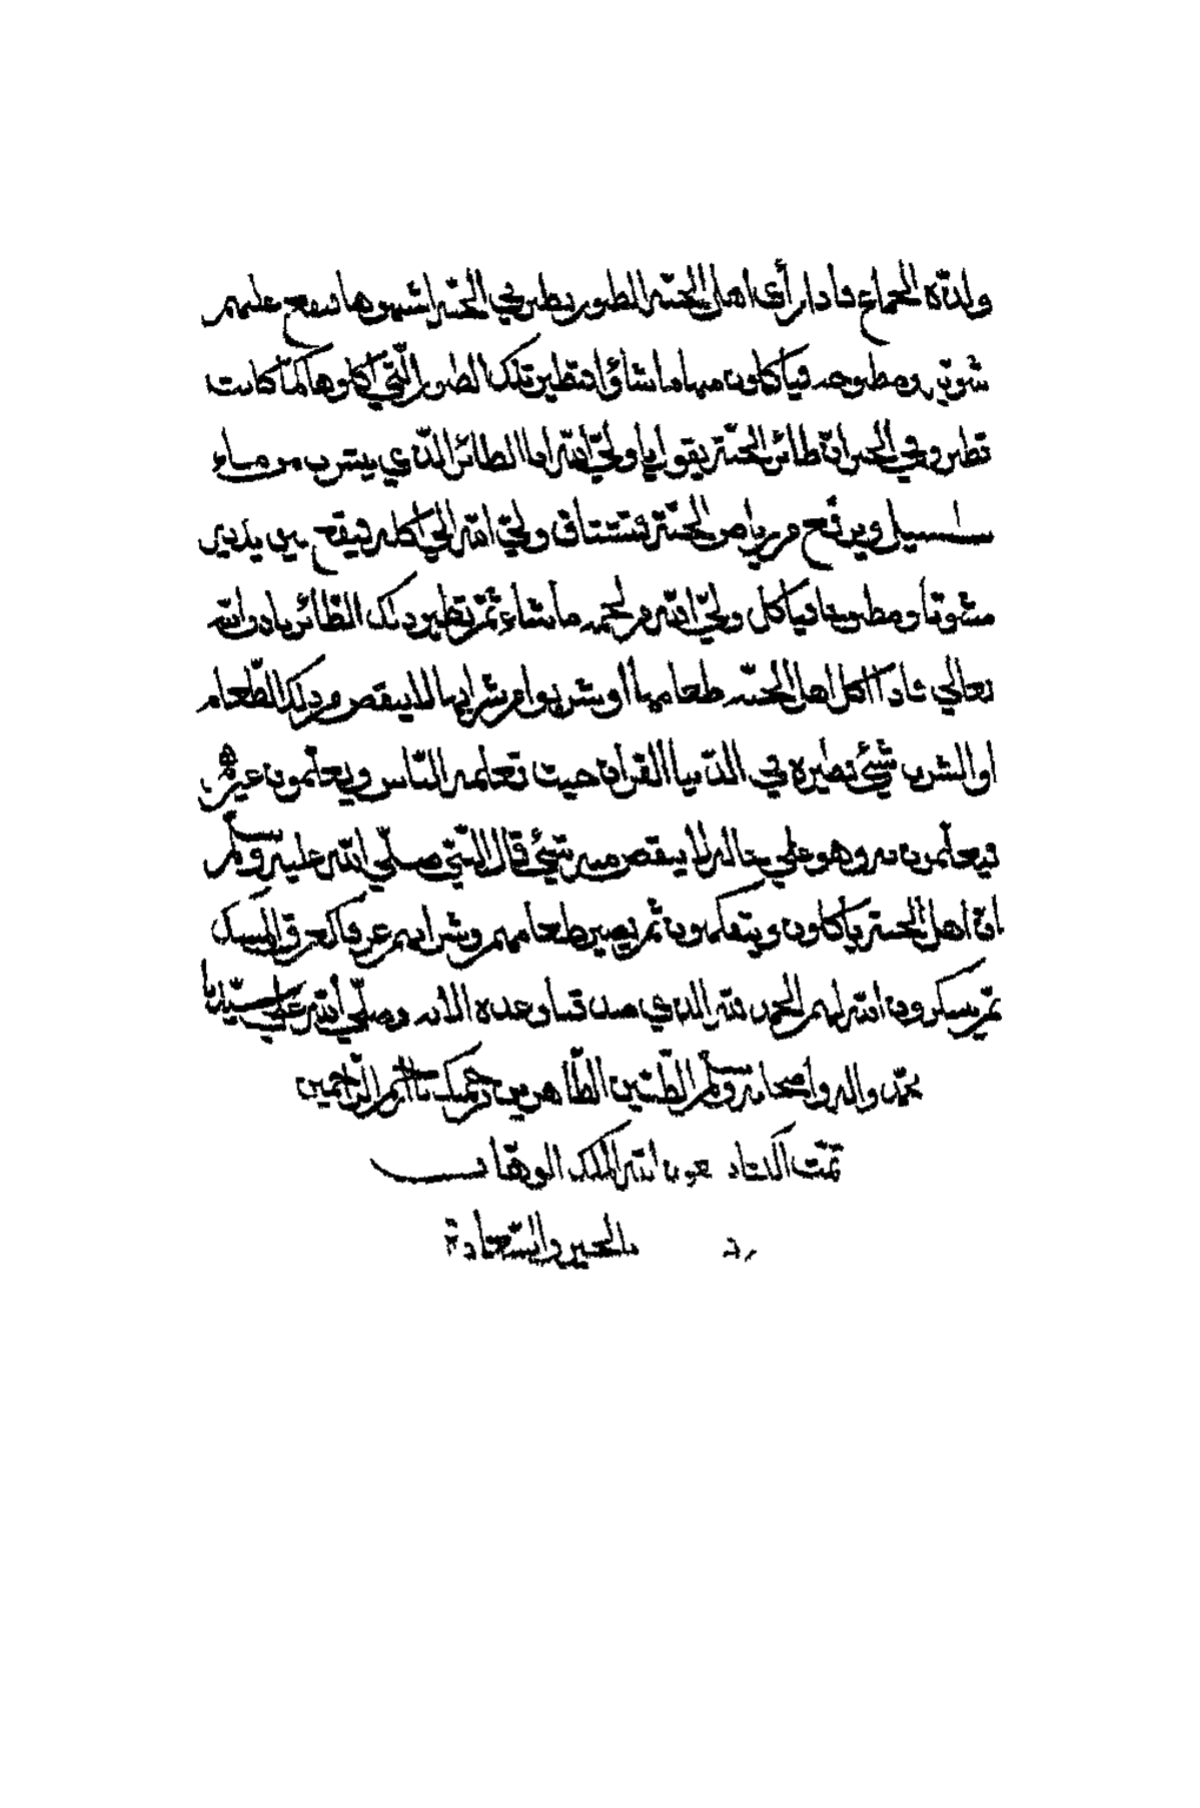 ولذة الجماع فاذا رأى اهل الجنة الطيور تطير في الجنة اشتهوها فتقع عليهم
شوية ومطبوخة فيأكلون منها ما شاؤا فتطير تلك الطيور الّتي اكلوها كما كانت
تطير وفي الخبر انّ طائر الجنّة يقول يا وليّ الله انا الطائر الّذي يشرب من ماء
سلسبيل ويرتع من رياض الجنّة فتشتاق وليّ الله الى اكله فيقع بين يديه
مشويّا ومطبوخا فيأكل وليّ الله من لحمه ما شاء ثمّ تطير ذلك الطّائر باذن الله
تعالى فاذا اكل اهل الجنّة طعامها أو شربوا من شرابها لا ينقص من ذلك الطّعام
او الشرب شيئ نظيره في الدّنيا القران حيث تعلمه النّاس ويعلّمون غيرهم
فيعلّمونه وهو على حاله لا ينقص منه شيئ قال النّبيّ صلّى الله عليه وسلّم
انّ اهل الجنّة يأكلون ويتفكهون ثمّ يصير طعامهم وشرابهم عرقا كعرق المسك
ثمّ يشكرون الله لهم الحمد لله الذي صدقنا وعده الاية وصلّى الله على سيّدنا
محمّد واله وأصحابه وسلّم الطّيّبين الطّاهرين برحمتك يا ارحم الرّاحمين
تمّت الكتاب بعون الله الملك الوهّاب
بالخير والسّعادة